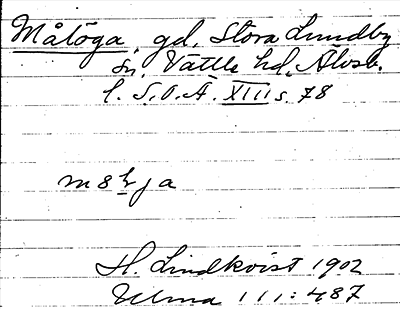 Målöga, gd, Stora Lundby
sn, Vättle hd, Älvsb.
l. S.O.Ä. XIII s. 78
H. Lindkvist 1902
Ulma 111:487